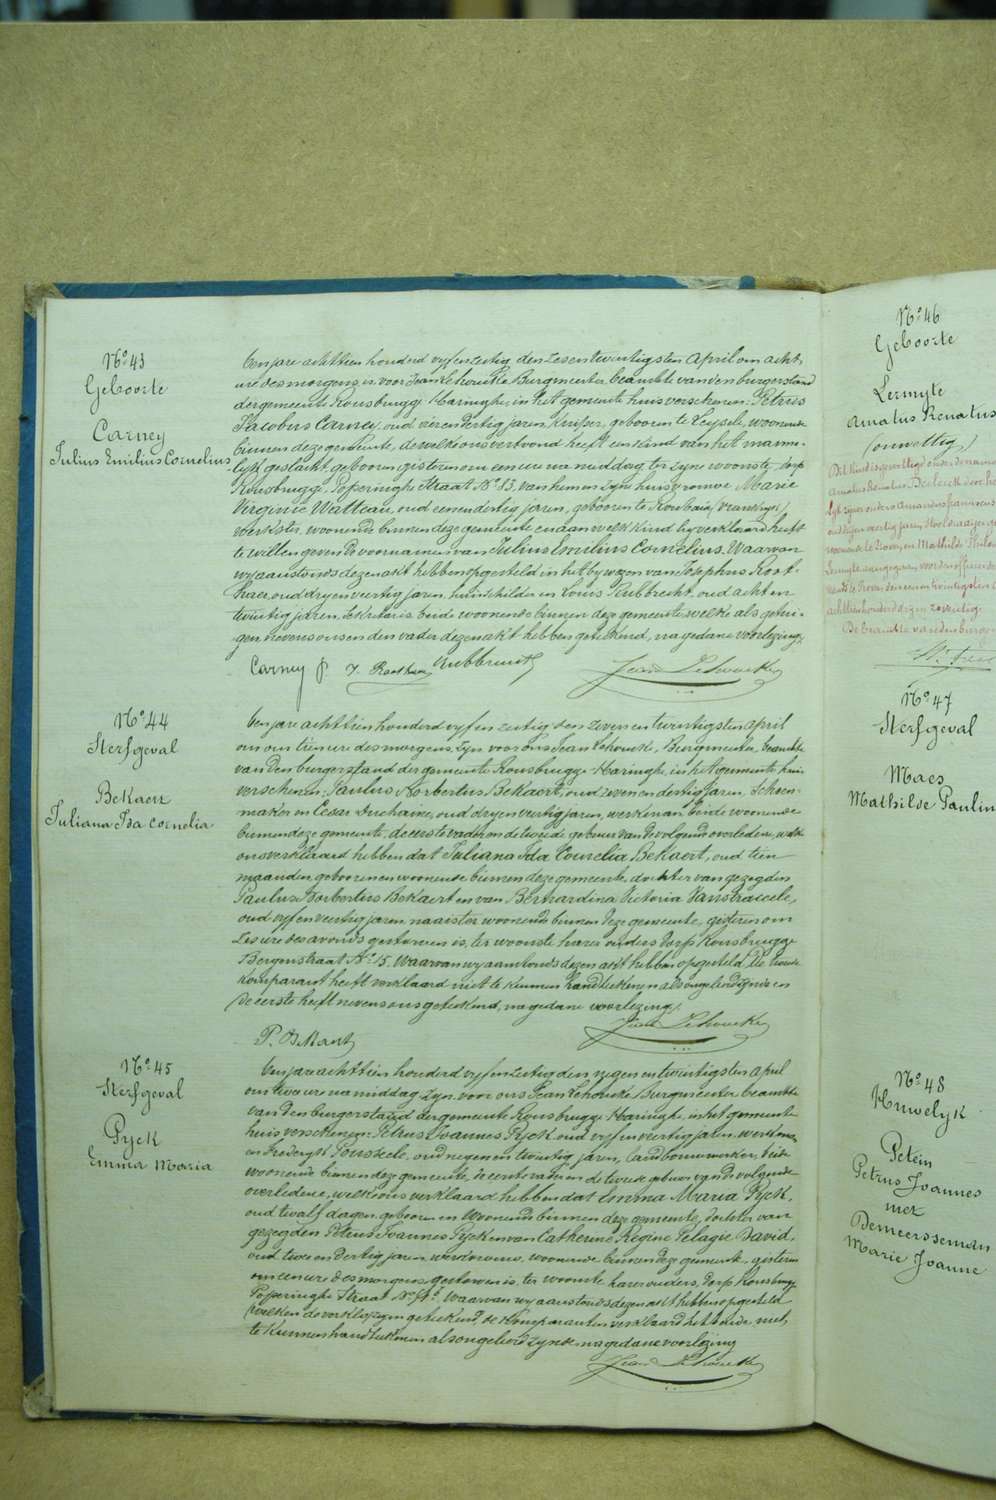 N° 43
Geboorte
Carney
Julius Emilius Cornelius
Ten jare achttien honderd vyf en zestig, den zes en twintigsten April om acht
ure des morgens, is voor Jean Lehoucke Burgmeester, beambte van den burgerstand
der gemeente Rousbrugge-Haringhe, in het gemeentehuis verschenen: Petrus
Jacobus Carney, oud vier en dertig jaren, kuiper, geboren te Leysele, woonende
binnen deze gemeente, dewelke ons vertoond heeft een kind van het manne-
lyk geslacht, geboren gisteren om een ure namiddag, ter zyne woonste, dorp
Rousbrugge, Poperinghe Straat N° 83, van hem en zyne huisvrouwe Marie
Virginie Watteau, oud een en dertig jaren, geboren te Roubaix, (Vrankryk)
werkster, woonende binnen deze gemeente en aan welk kind hy verklaard heeft
te willen geven de voornamen van Julius Emilius Cornelius. Waarvan
wy aanstonds dezen akt hebben opgesteld in het bywezen van Josephus Root-
haer, oud dry en veertig jaren, huisschilder en Louis Rubbrecht, oud acht en
twintig jaren, sekretaris beide woonende binnen deze gemeente welke als getui-
gen nevens ons en den vader dezen akt hebben geteekend, na gedane voorlezing.
Carney p J. Roothaer Rubbrecht Jean Lehoucke
N° 44
Sterfgeval
Bekaert
Juliana Ida Cornelia
Ten jare achttien honderd vyf en zestig den zeven en twintigsten April
om tien ure des morgens, zyn voor ons Jean Lehoucke, Burgmeester, beambte
van den burgerstand der gemeente Rousbrugge-Haringhe, in het gemeentehuis
verschenen: Paulus Norbertus Bekaert, oud zeven en dertig jaren, schoen-
maker en Cesar Duchaine, oud dry en veertig jaren, werkman beide woonende
binnen deze gemeente, de eerste vader en de tweede gebuer van de volgende overledene, welke
ons verklaard hebben dat Juliana Ida Cornelia Bekaert, oud tien
maanden geboren en woonende binnen deze gemeente, dochter van gezegden
Paulus Norbertus Bekaert en van Bernardina Victoria Vanstraceele,
oud vyf en veertig jaren naaister woonende binnen deze gemeente, gisteren om
zes ure des avonds gestorven is, ter woonste harer ouders dorp Rousbrugge
Bergenstraat N° 15. Waarvan wy aanstonds dezen akt hebben opgesteld. De tweede
komparant heeft verklaard niet te kunnen handteekenen als ongeleerd zynde en
de eerste heeft nevens ons geteekend, na gedane voorlezing.
P. Bekaert Jean Lehoucke
N° 45
Sterfgeval
Pyck
Emma Maria
Ten jare achttien honderd vyf en zestig den negen en twintigsten April
om twee ure namiddag zyn voor ons Jean Lehoucke Burgmeester beambte
van den burgerstand der gemeente Rousbrugge-Haringhe, in het gemeente
huis verschenen: Petrus Joannes Pyck oud vyf en veertig jaren, werkman
en Frederyk Pouseele, oud negen en twintig jaren, landbouwwerker, beide
woonende binnen deze gemeente, de eerste vader en de tweede gebuer van de volgende
overledene, welke ons verklaard hebben dat Emma Maria Pyck,
oud twaalf dagen, geboren en woonende binnen deze gemeente, dochter van
gezegden Petrus Joannes Pyck en van Catherine Regine Pelagie David,
oud twee en dertig jaren, werkvrouw, woonende binnen deze gemeente, gisteren
om een ure des morgens gestorven is, ter woonste harer ouders, dorp Rousbrugge
Poperinghe Straat Waarvan wy aanstonds dezen akt hebben opgesteld
de komparanten verklaard hebbende niet
te kunnen handteekenen als ongeleerd zynde na gedane voorlezing
Jean Lehoucke
N° 46
Geboorte
Lermyte
Amatus Renatus
(onwettig)
Dit kind is gewettigd onder de namen
Amatus Renatus Declerck door het
N° 47
Sterfgeval
Maes
Mathilde Paulin
N° 48
Huwelyk
Petein
Petrus Joannes
met
Demeersseman
Marie Joanne